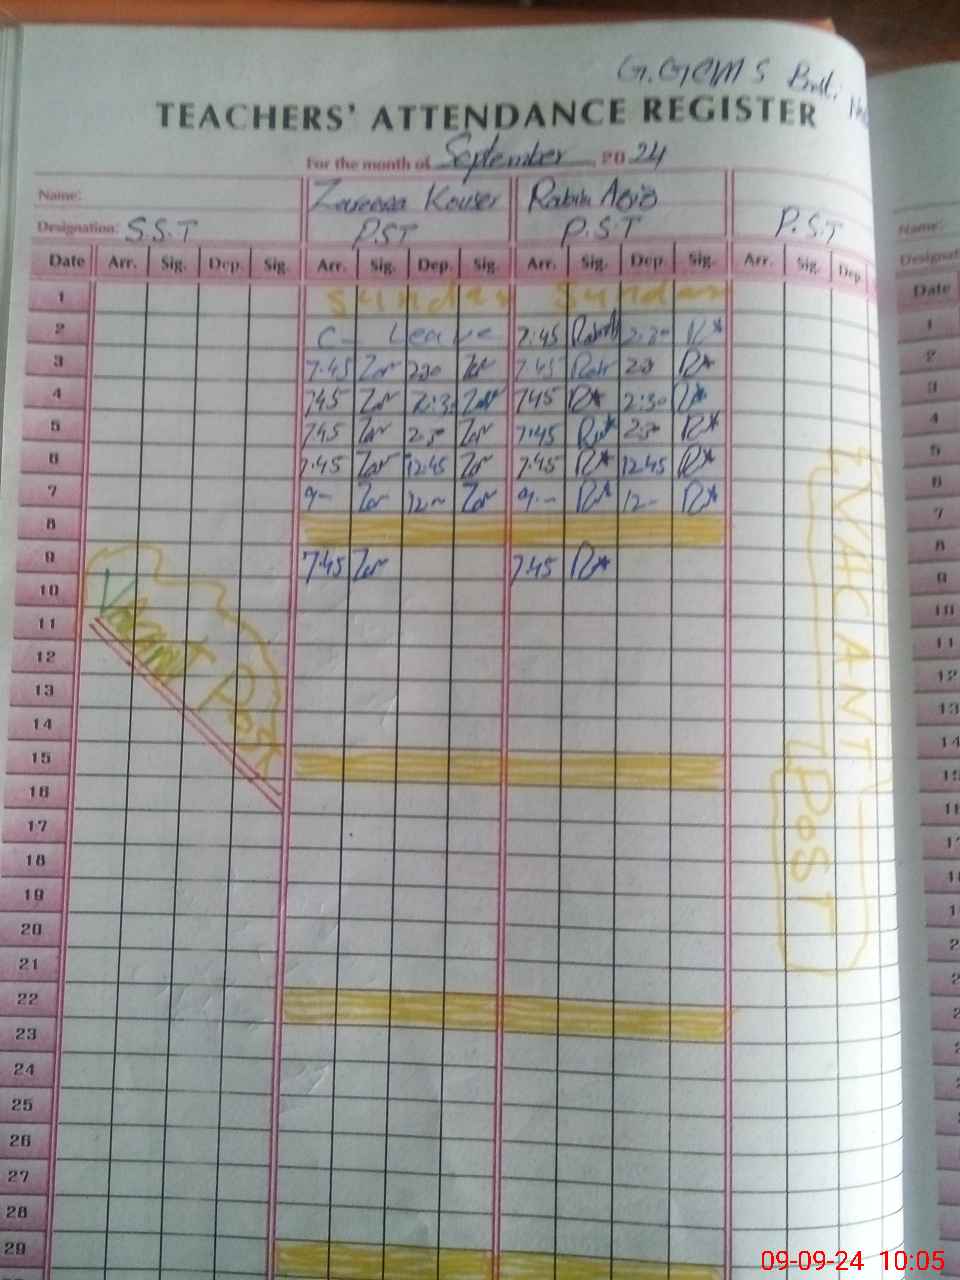 G.GCMS
TEACHERS' ATTENDANCE REGISTER
For the month of September, 2024
Name: Zareena Kouser Rabia Aziz
Designation: S.S.T P.S.T P.S.T P.S.T
Date Arr. Sig. Dep. Sig. Arr. Sig. Dep. Sig. Arr. Sig. Dep. Sig. Arr. Sig. Dep
1 Sunday Sunday
2 C- Leave 7:45 2:30 R*
3 7:45 Zar 2:30 Zar 7:45 2:30 R*
4 7:45 Zar 2:30 Zar 7:45 R* 2:30 R*
5 7:45 Zar 2:30 Zar 7:45 2:30 R*
6 7:45 Zar 12:45 Zar 7:45 R* 12:45 R*
7 9- Zar 12- Zar 9- R* 12- R*
8
9 7:45 Zar 7:45 R*
10
11
12
13
14
15
16
17
18
19
20
21
22
23
24
25
26
27
28
29
Vacant Post
VACANT POST
Name:
Designat
Date
1
2
3
4
5
6
7
8
9
10
11
12
13
14
09-09-24 10:05